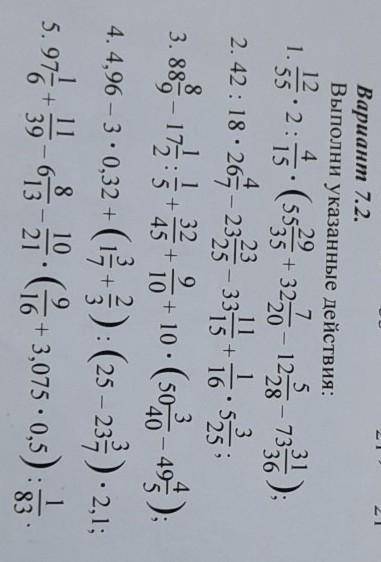 Вариант 7.2.
Выполни указанные действия:
1. 12/55 · 2 : 4/15 · (55 29/35 + 32 7/20 − 12 5/28 − 73 31/36);
2. 42 : 18 · 26 4/7 − 23 23/25 − 33 11/15 + 1/16 · 5 3/25;
3. 88 8/9 − 17 1/2 : 1/5 + 32/45 + 9/10 + 10 · (50 3/40 − 49 4/5);
4. 4,96 − 3 · 0,32 + (1 3/7 + 2/3) : (25 − 23 3/7) · 2,1;
5. 97 1/6 + 11/39 − 6 8/13 − 10/21 · (9/16 + 3,075 · 0,5) : 1/83 .